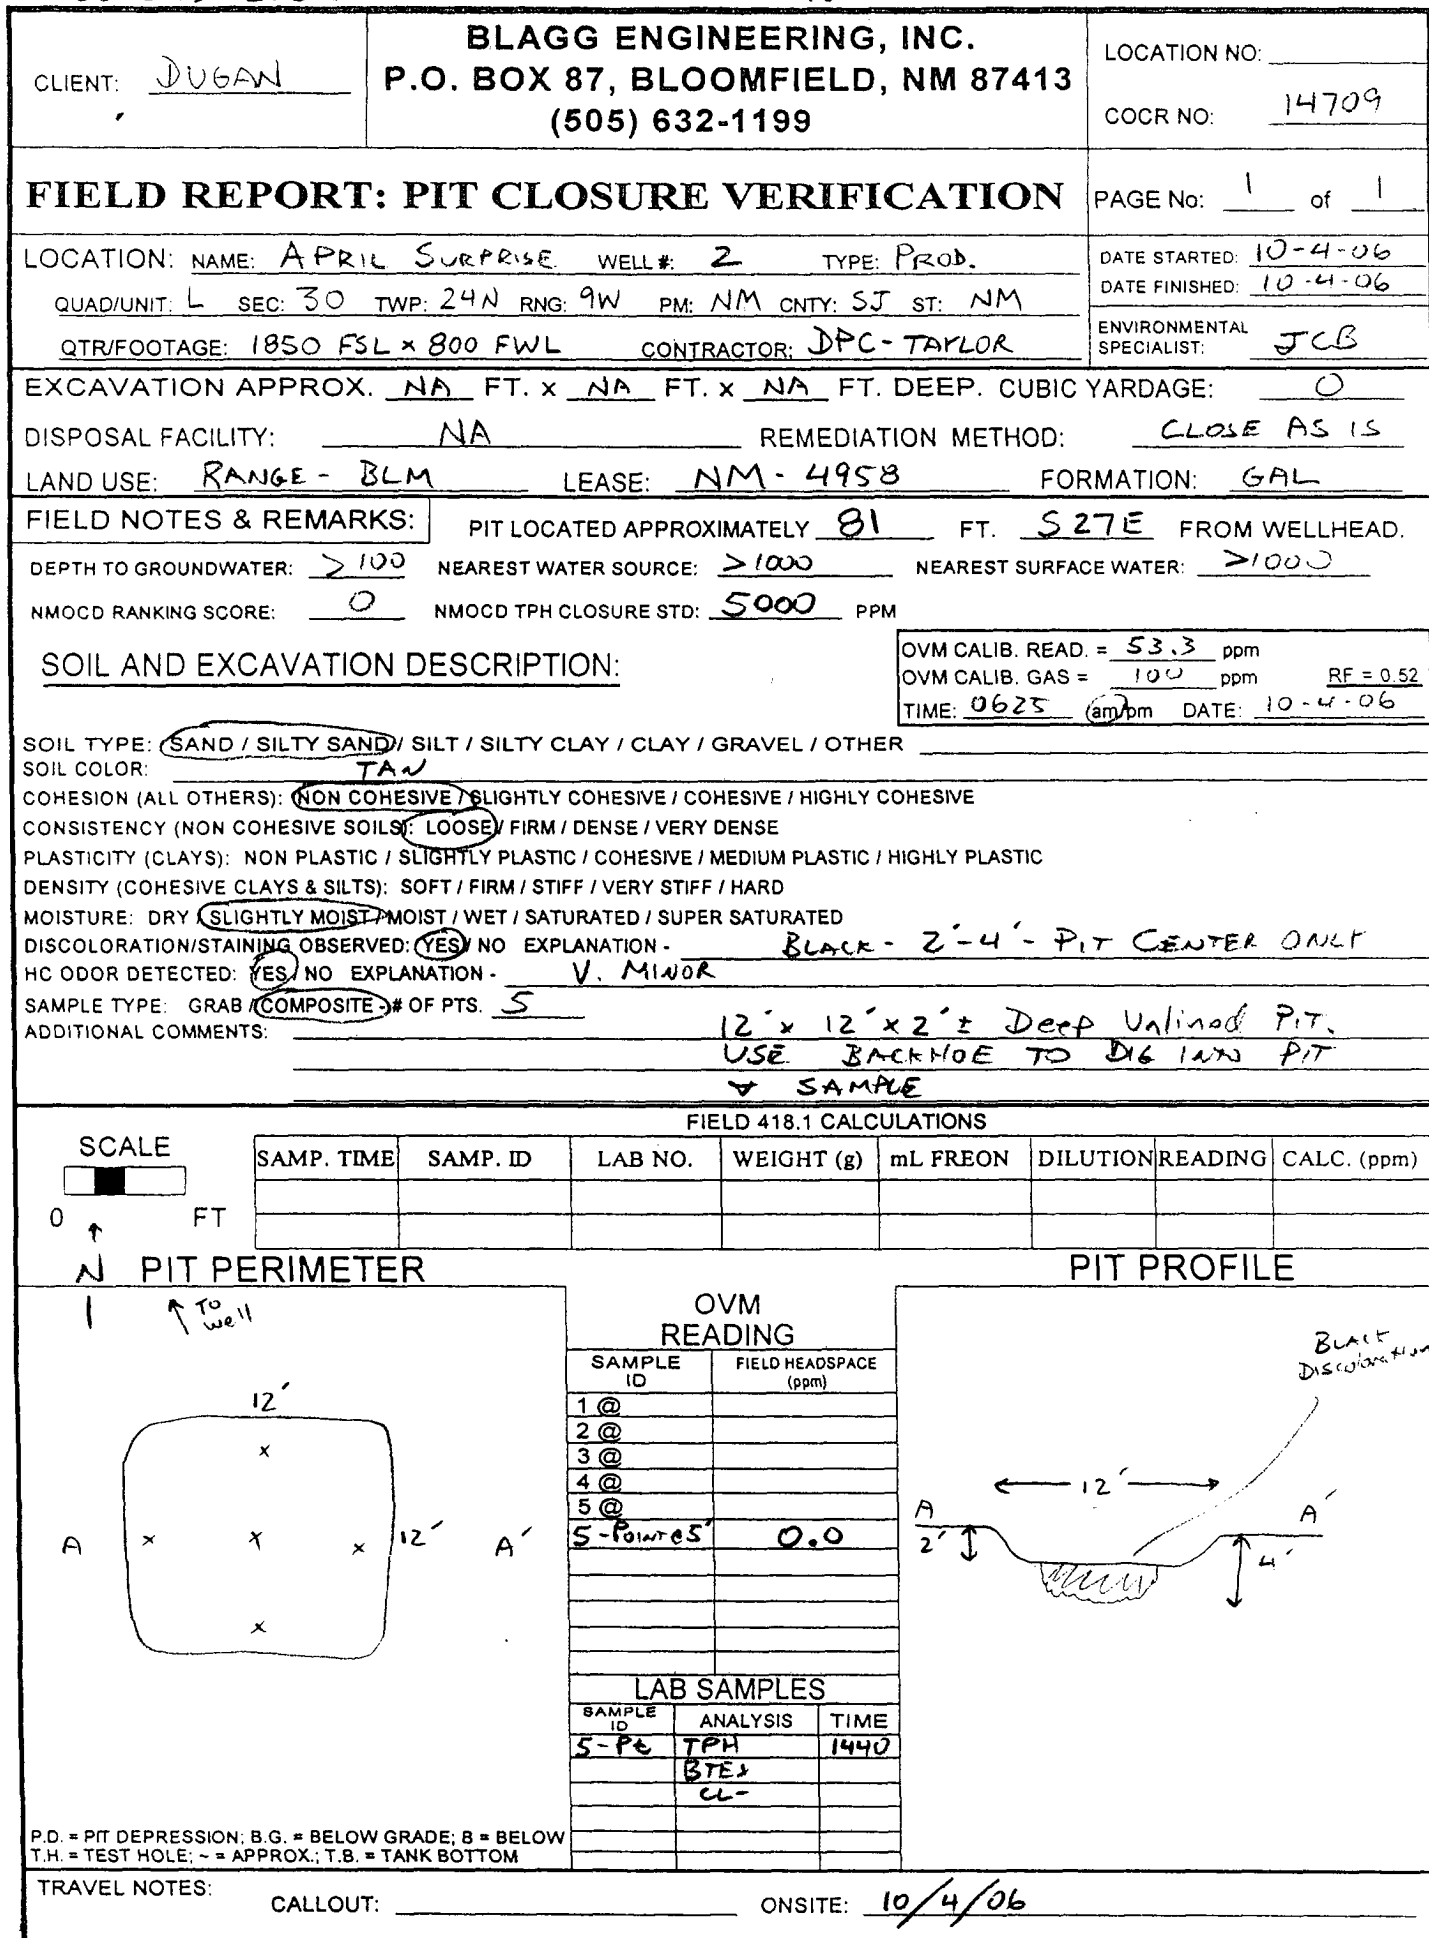 BLAGG ENGINEERING, INC.
P.O. BOX 87, BLOOMFIELD, NM 87413
(505) 632-1199
CLIENT: DUGAN
LOCATION NO:
COCR NO: 14709
FIELD REPORT: PIT CLOSURE VERIFICATION
PAGE No: 1 of 1
LOCATION: NAME: APRIL SURPRISE WELL #: 2 TYPE: PROD.
QUAD/UNIT: L SEC: 30 TWP: 24N RNG: 9W PM: NM CNTY: SJ ST: NM
QTR/FOOTAGE: 1850 FSL x 800 FWL CONTRACTOR: DPC-TAYLOR
DATE STARTED: 10-4-06
DATE FINISHED: 10-4-06
ENVIRONMENTAL
SPECIALIST: JCB
EXCAVATION APPROX. NA FT. x NA FT. x NA FT. DEEP. CUBIC YARDAGE: 0
DISPOSAL FACILITY: NA REMEDIATION METHOD: CLOSE AS IS
LAND USE: RANGE - BLM LEASE: NM-4958 FORMATION: GAL
FIELD NOTES & REMARKS: PIT LOCATED APPROXIMATELY 81 FT. S27E FROM WELLHEAD.
DEPTH TO GROUNDWATER: >100 NEAREST WATER SOURCE: >1000 NEAREST SURFACE WATER: >1000
NMOCD RANKING SCORE: 0 NMOCD TPH CLOSURE STD: 5000 PPM
SOIL AND EXCAVATION DESCRIPTION:
OVM CALIB. READ. = 53.3 ppm
OVM CALIB. GAS = 100 ppm RF = 0.52
TIME: 0625 am/pm DATE: 10-4-06
SOIL TYPE: SAND / SILTY SAND / SILT / SILTY CLAY / CLAY / GRAVEL / OTHER
SOIL COLOR: TAN
COHESION (ALL OTHERS): NON COHESIVE / SLIGHTLY COHESIVE / COHESIVE / HIGHLY COHESIVE
CONSISTENCY (NON COHESIVE SOILS): LOOSE / FIRM / DENSE / VERY DENSE
PLASTICITY (CLAYS): NON PLASTIC / SLIGHTLY PLASTIC / COHESIVE / MEDIUM PLASTIC / HIGHLY PLASTIC
DENSITY (COHESIVE CLAYS & SILTS): SOFT / FIRM / STIFF / VERY STIFF / HARD
MOISTURE: DRY / SLIGHTLY MOIST / MOIST / WET / SATURATED / SUPER SATURATED
DISCOLORATION/STAINING OBSERVED: YES / NO EXPLANATION - BLACK - 2'-4' - PIT CENTER ONLY
HC ODOR DETECTED: YES / NO EXPLANATION - V. MINOR
SAMPLE TYPE: GRAB / COMPOSITE - # OF PTS. 5
ADDITIONAL COMMENTS: 12' x 12' x 2' ± Deep Unlined PIT.
USE BACKHOE TO DIG INTO PIT
SAMPLE
FIELD 418.1 CALCULATIONS
SCALE
0 FT
SAMP. TIME SAMP. ID LAB NO. WEIGHT (g) mL FREON DILUTION READING CALC. (ppm)
N PIT PERIMETER
PIT PROFILE
To
well
12'
A 12' A'
OVM
READING
SAMPLE ID FIELD HEADSPACE (ppm)
1 @
2 @
3 @
4 @
5 @
5-POINT @ 5' 0.0
BLACK
DISCOLORATION
12'
A A'
2' 4'
LAB SAMPLES
SAMPLE ID ANALYSIS TIME
5-Pt TPH 1440
BTEX
CL-
P.D. = PIT DEPRESSION; B.G. = BELOW GRADE; B = BELOW
T.H. = TEST HOLE; ~ = APPROX.; T.B. = TANK BOTTOM
TRAVEL NOTES:
CALLOUT: ONSITE: 10/4/06